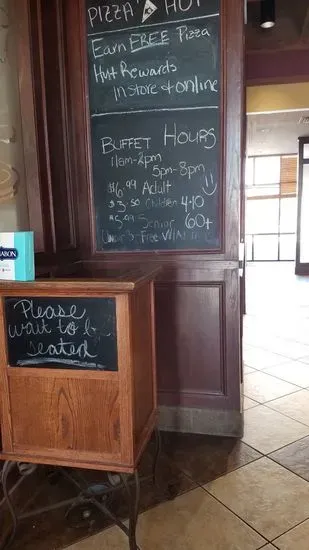 PIZZA HUT
Earn FREE Pizza
Hut Rewards
in store & online
BUFFET HOURS
11am-2pm
5pm-8pm
$6.99 Adult
$3.50 Children 4-10
$5.99 Senior 60+
Under 3 Free W/
Please
wait to be
seated